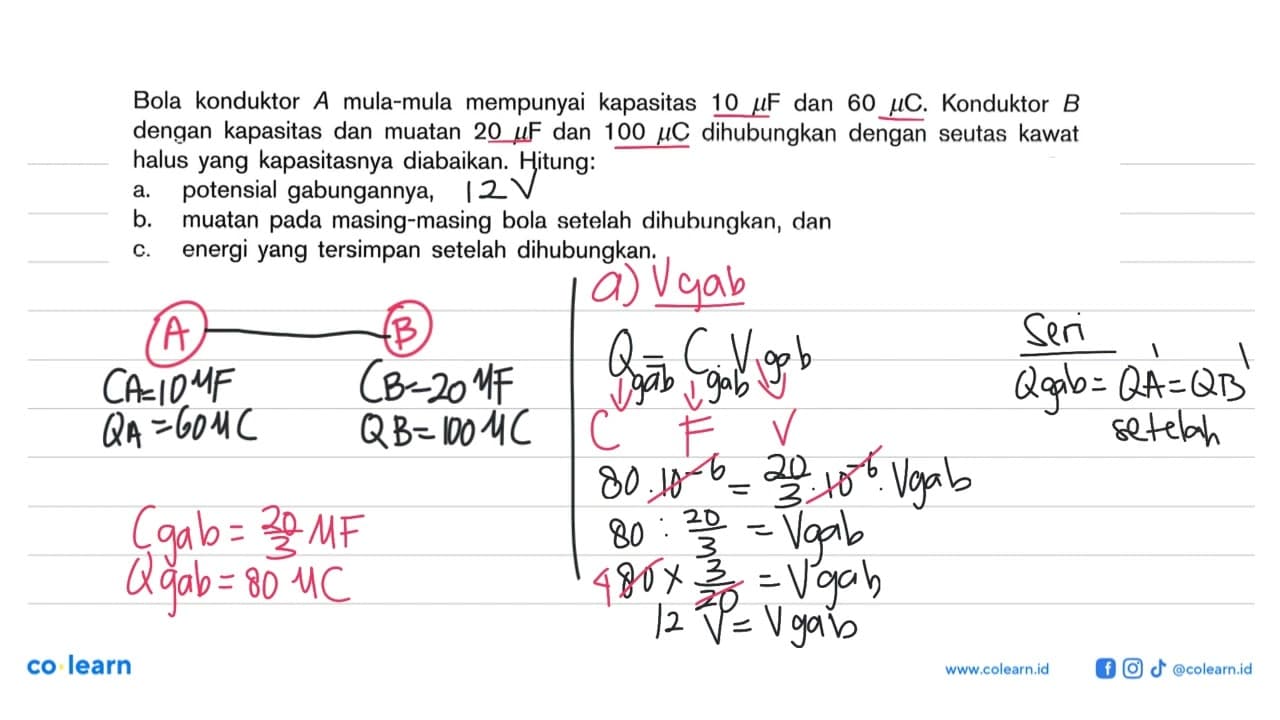 Bola konduktor A mula-mula mempunyai kapasitas 10 μF dan 60 μC. Konduktor B
dengan kapasitas dan muatan 20 μF dan 100 μC dihubungkan dengan seutas kawat
halus yang kapasitasnya diabaikan. Hitung:
a. potensial gabungannya, 12 V
b. muatan pada masing-masing bola setelah dihubungkan, dan
c. energi yang tersimpan setelah dihubungkan.
A B
CA=10 MF CB=20 MF
QA=60 MC QB=100 MC
Cgab = 20/3 MF
Qgab = 80 MC
a) Vgab
Qgab = Cgab . Vgab
↓ ↓ ↓
C F V
80 . 10⁻⁶ = 20/3 . 10⁻⁶ . Vgab
80 : 20/3 = Vgab
4 80 x 3/20 = Vgab
12 V = Vgab
Seri
Qgab = QA' = QB'
setelah
co·learn
www.colearn.id @colearn.id